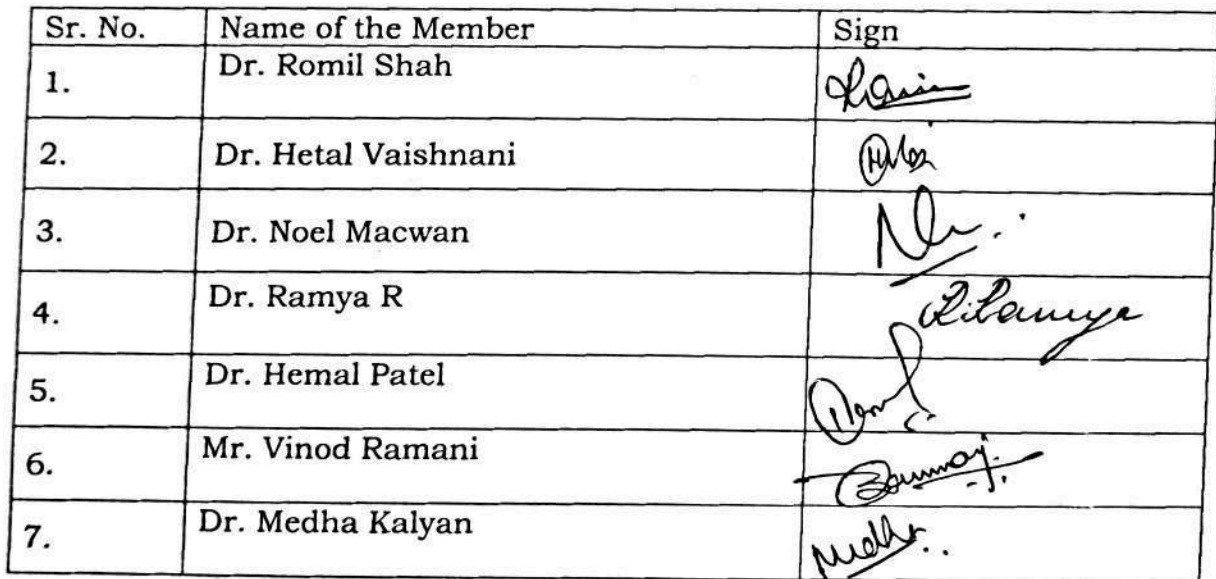 Sr. No. Name of the Member Sign
1. Dr. Romil Shah
2. Dr. Hetal Vaishnani
3. Dr. Noel Macwan
4. Dr. Ramya R R.Ramya
5. Dr. Hemal Patel
6. Mr. Vinod Ramani
7. Dr. Medha Kalyan Medha